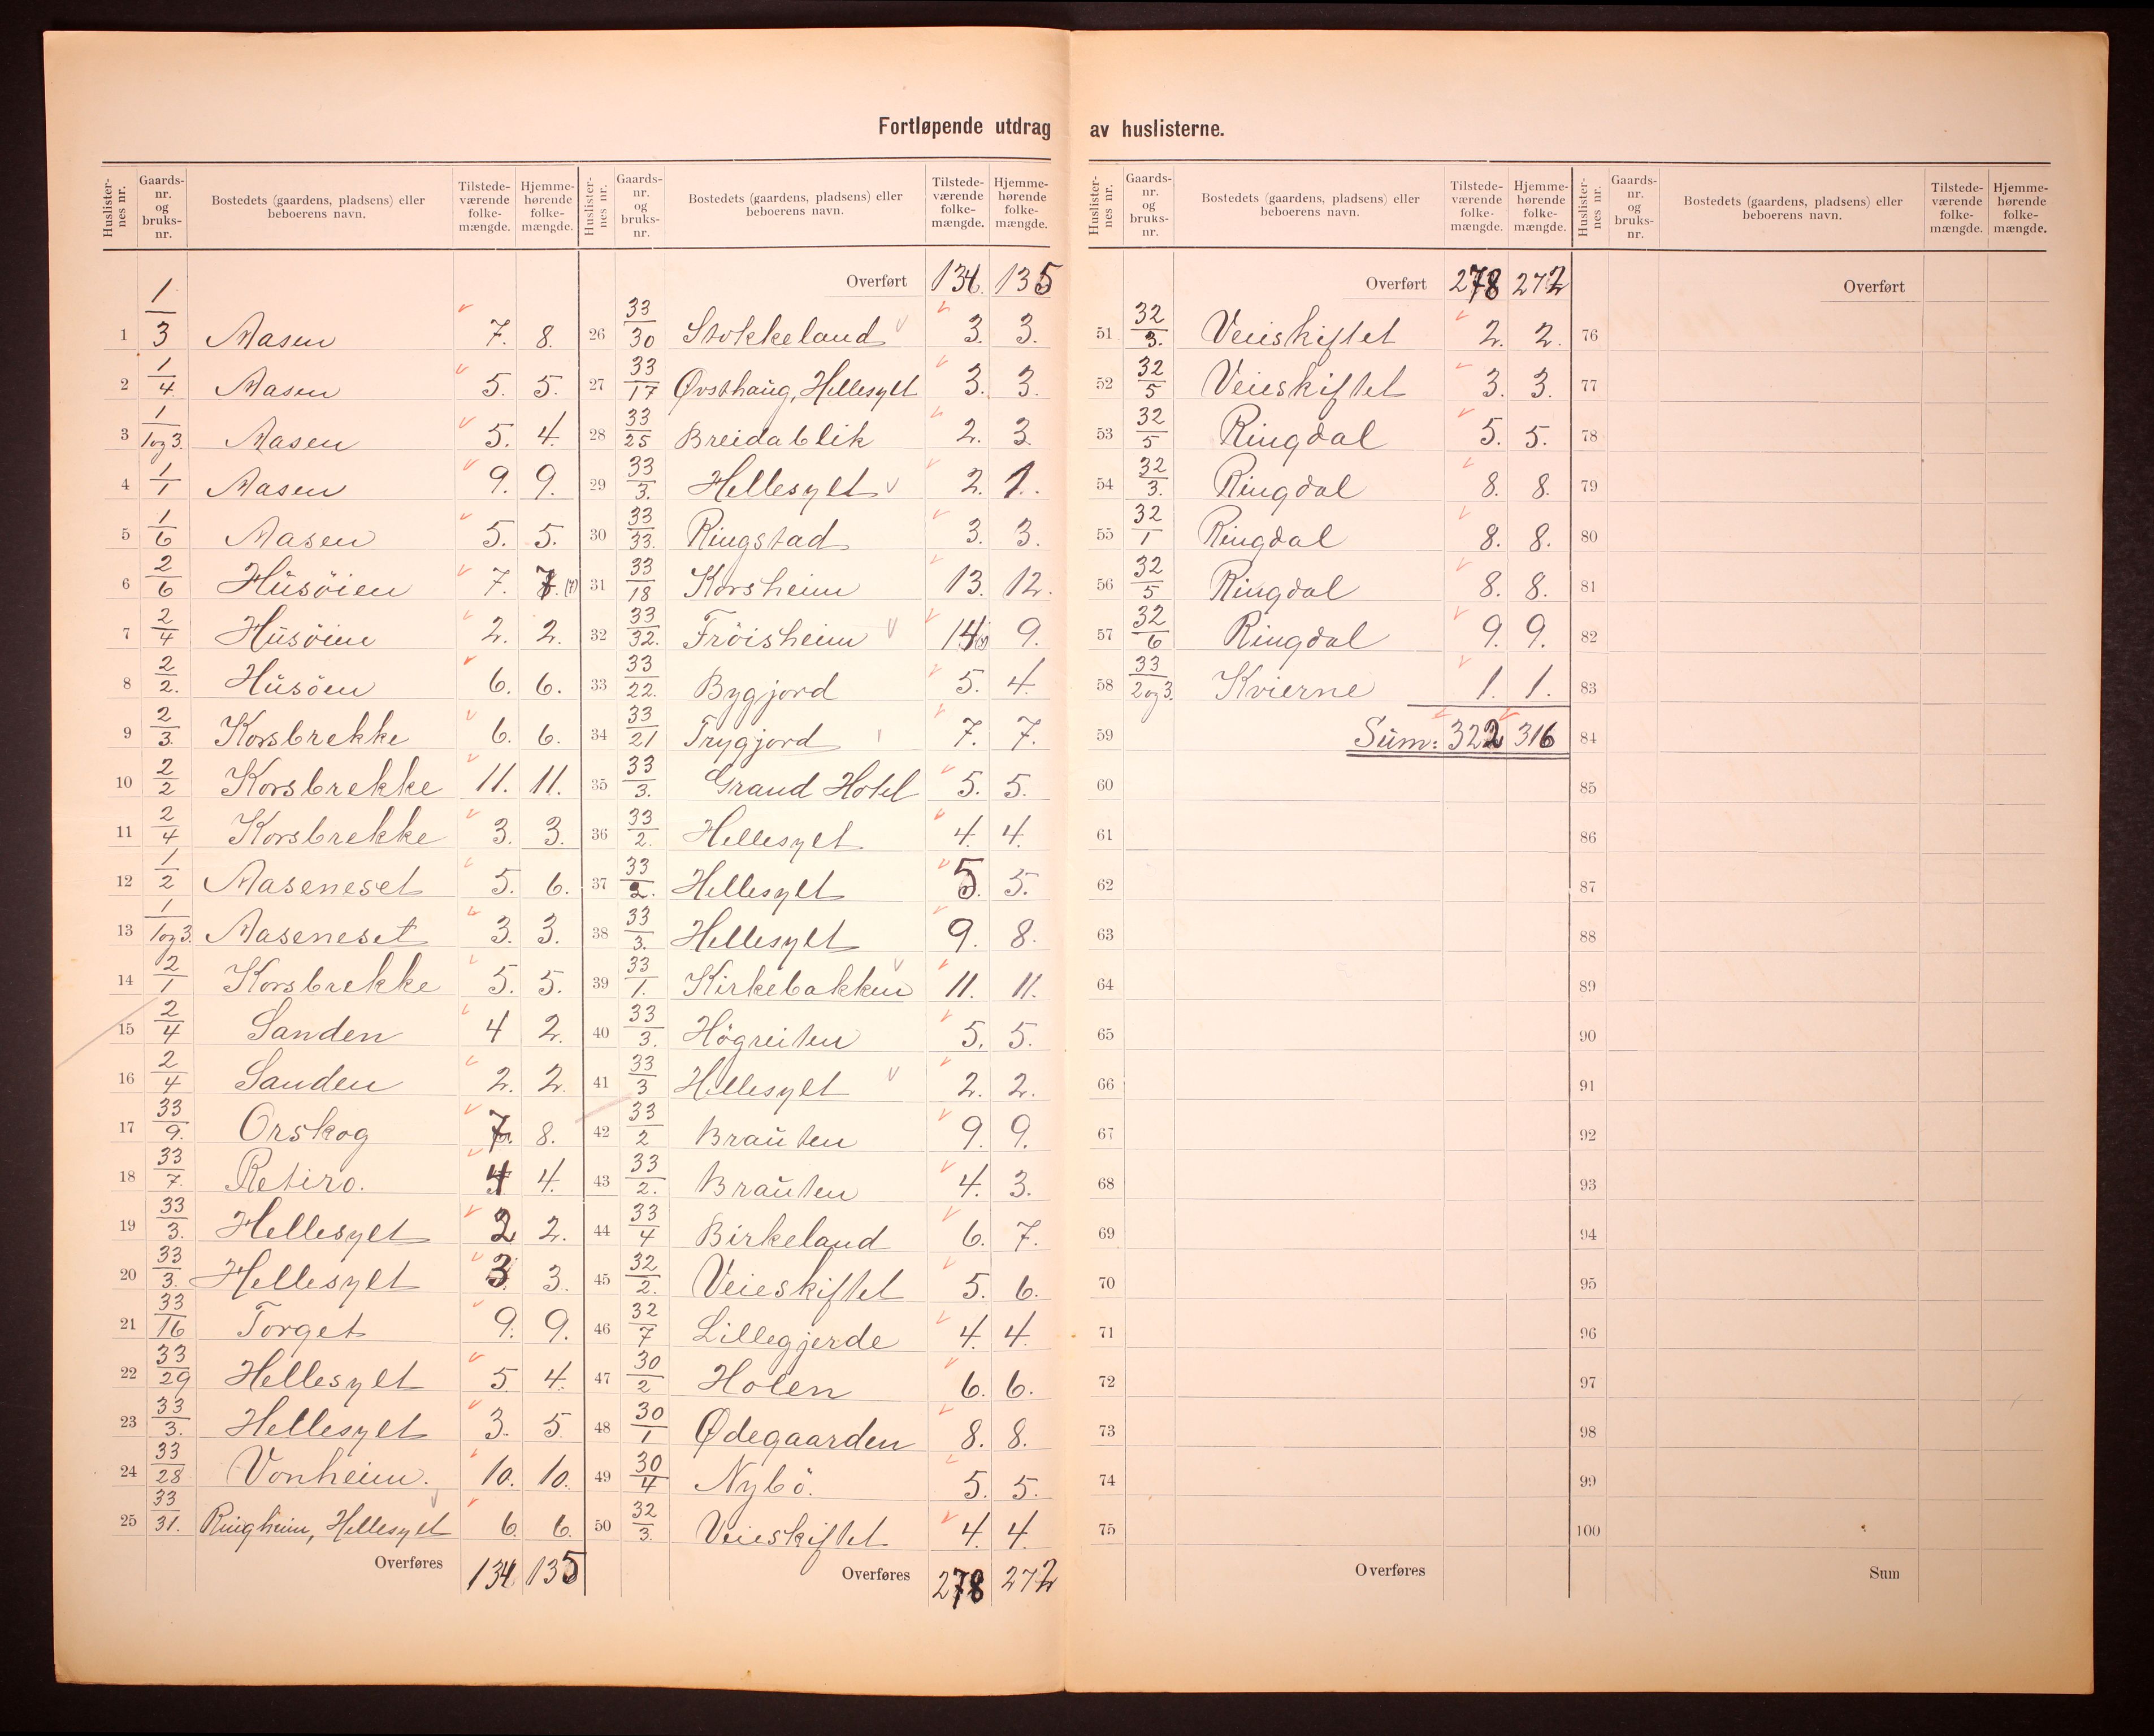 Fortløpende utdrag av huslisterne.
Huslister-nes nr. Gaards-nr. og bruks-nr. Bostedets (gaardens, pladsens) eller beboerens navn. Tilstede-værende folke-mængde. Hjemme-hørende folke-mængde.
1 1/3 Aasen 7. 8.
2 1/4 Aasen 5. 5.
3 1/1og3. Aasen 5. 4.
4 1/1 Aasen 9. 9.
5 1/6 Aasen 5. 5.
6 2/6 Husöien 7. 7. (7)
7 2/4 Husöien 2. 2.
8 2/2. Husöen 6. 6.
9 2/3. Korsbrekke 6. 6.
10 2/2 Korsbrekke 11. 11.
11 2/4 Korsbrekke 3. 3.
12 1/2 Aaseneset 5. 6.
13 1/1og3. Aaseneset 3. 3.
14 2/1 Korsbrekke 5. 5.
15 2/4 Sanden 4 2.
16 2/4 Sanden 2. 2.
17 33/9. Orskog 7. 8.
18 33/7. Retiro. 4 4.
19 33/3. Hellesylt 2 2.
20 33/3. Hellesylt 3 3.
21 33/16 Torget 9. 9.
22 33/29 Hellesylt 5 4.
23 33/3. Hellesylt 3. 5.
24 33/28 Vonheim. 10. 10.
25 33/31. Ringheim, Hellesylt 6. 6.
Overføres 134 135
Huslister-nes nr. Gaards-nr. og bruks-nr. Bostedets (gaardens, pladsens) eller beboerens navn. Tilstede-værende folke-mængde. Hjemme-hørende folke-mængde.
Overført 134. 135
26 33/30 Stokkeland 3. 3.
27 33/17 Øvsthaug, Hellesylt 3. 3.
28 33/25 Breidablik 2. 3
29 33/3. Hellesylt 2. 1.
30 33/33. Ringstad 3. 3.
31 33/18 Korsheim 13. 12.
32 33/32. Fröisheim 14 9.
33 33/22. Bygjord 5. 4.
34 33/21 Trygjord 7. 7.
35 33/3. Grand Hotel 5. 5.
36 33/2. Hellesylt 4. 4.
37 33/2. Hellesylt 5. 5.
38 33/3. Hellesylt 9. 8.
39 33/1. Kirkebakken 11. 11.
40 33/3. Högreiten 5. 5.
41 33/3 Hellesylt 2. 2.
42 33/2 Brauten 9. 9.
43 33/2. Brauten 4. 3.
44 33/4 Birkeland 6. 7.
45 32/2. Veieskiftet 5. 6.
46 32/7 Lillegjerde 4. 4.
47 30/2 Holen 6. 6.
48 30/1 Ødegaarden 8. 8.
49 30/4 Nybö. 5. 5.
50 32/3. Veieskiftet 4. 4.
Overføres 278 272
Huslister-nes nr. Gaards-nr. og bruks-nr. Bostedets (gaardens, pladsens) eller beboerens navn. Tilstede-værende folke-mængde. Hjemme-hørende folke-mængde.
Overført 278 272
51 32/3. Veieskiftet 2. 2.
52 32/5 Veieskiftet 3. 3.
53 32/5 Ringdal 5. 5.
54 32/3. Ringdal 8. 8.
55 32/1 Ringdal 8. 8.
56 32/5 Ringdal 8. 8.
57 32/6 Ringdal 9. 9.
58 33/2og3. Kvierne 1. 1.
59 Sum: 322 316
60
61
62
63
64
65
66
67
68
69
70
71
72
73
74
75
Overføres
Huslister-nes nr. Gaards-nr. og bruks-nr. Bostedets (gaardens, pladsens) eller beboerens navn. Tilstede-værende folke-mængde. Hjemme-hørende folke-mængde.
Overført
76
77
78
79
80
81
82
83
84
85
86
87
88
89
90
91
92
93
94
95
96
97
98
99
100
Sum